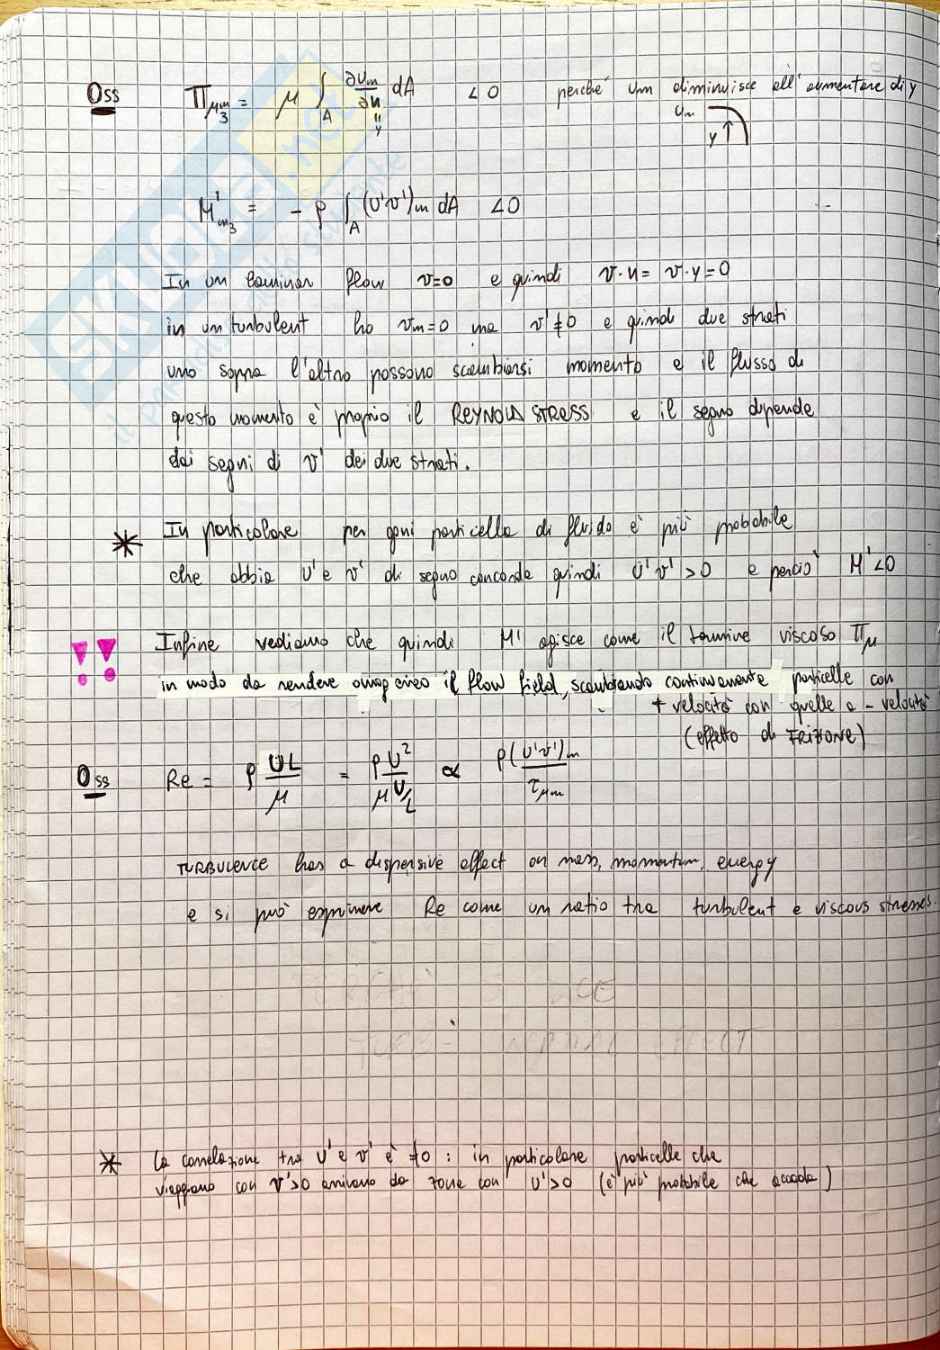 Oss Πμm3 = μ ∫A ∂um/∂n dA < 0 perché um diminuisce all'aumentare di y
= y
um
y ↑
M'm3 = - ρ ∫A (u'v')m dA < 0
In un laminar flow v=0 e quindi v·n = v·y = 0
in un turbulent ho vm=0 ma v'≠0 e quindi due strati
uno sopra l'altro possono scambiarsi momento e il flusso di
questo momento è proprio il REYNOLD STRESS e il segno dipende
dai segni di v' dei due strati.
* In particolare per ogni particella di fluido è più probabile
che abbia u' e v' di segno concorde quindi u'v' > 0 e perciò M' < 0
!! Infine vediamo che quindi M' agisce come il termine viscoso Πμ
in modo da rendere omogeneo il flow field, scambiando continuamente particelle con
+ velocità con quelle a - velocità
(effetto di FRIZIONE)
Oss Re = ρ UL/μ = ρU²/(μ U/L) ∝ ρ(u'v')m/τμm
TURBULENCE has a dispersive effect on mass, momentum, energy
e si può esprimere Re come un ratio tra turbulent e viscous stresses.
* la correlazione tra u' e v' è ≠0 : in particolare particelle che
viaggiano con v'>0 arrivano da zone con u'>0 (è più probabile che accada)
SKUOLA.net